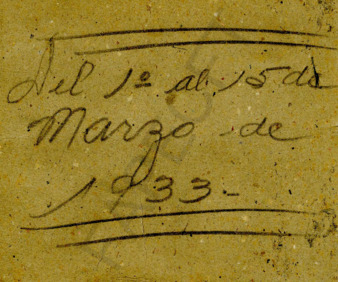 Del 1º al 15 de
Marzo de
1933-